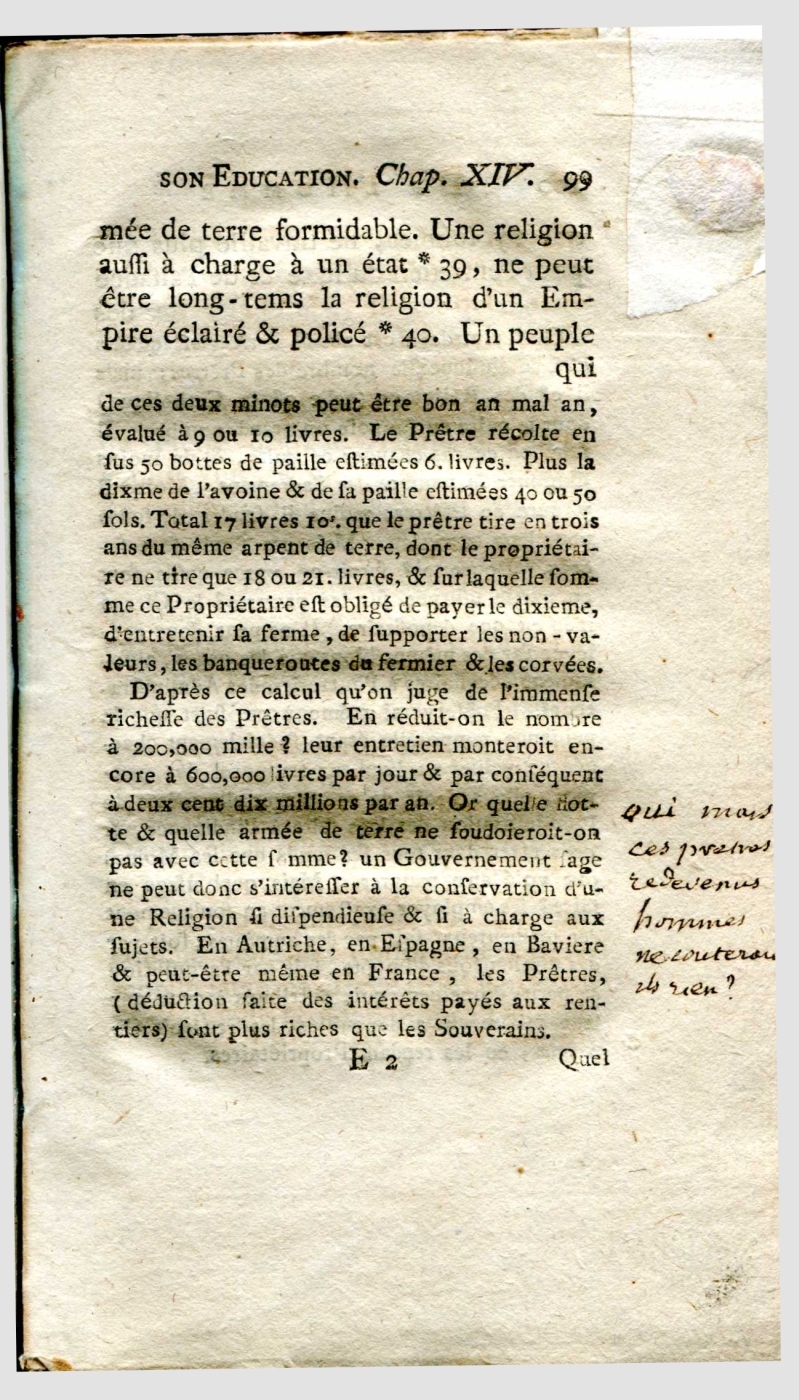 SON EDUCATION. Chap. XIV. 99
mée de terre formidable. Une religion
auſſi à charge à un état * 39, ne peut
être long-tems la religion d'un Em-
pire éclairé & policé * 40. Un peuple
qui
de ces deux minots peut être bon an mal an,
évalué à 9 ou 10 livres. Le Prêtre récolte en
ſus 50 bottes de paille eſtimées 6. livres. Plus la
dixme de l'avoine & de ſa paille eſtimées 40 ou 50
ſols. Total 17 livres 10ˢ. que le prêtre tire en trois
ans du même arpent de terre, dont le propriétai-
re ne tire que 18 ou 21. livres, & ſur laquelle ſom-
me ce Propriétaire eſt obligé de payer le dixieme,
d'entretenir ſa ferme, de ſupporter les non-va-
leurs, les banqueroutes du fermier & les corvées.
D'après ce calcul qu'on juge de l'immenſe
richeſſe des Prêtres. En réduit-on le nombre
à 200,000 mille ? leur entretien monteroit en-
core à 600,000 livres par jour & par conſéquent
à deux cent dix millions par an. Or quelle flot-
te & quelle armée de terre ne ſoudoieroit-on
pas avec cette ſomme? un Gouvernement ſage
ne peut donc s'intéreſſer à la conſervation d'u-
ne Religion ſi diſpendieuſe & ſi à charge aux
ſujets. En Autriche, en Eſpagne, en Baviere
& peut-être même en France, les Prêtres,
(déduction faite des intérêts payés aux ren-
tiers) ſont plus riches que les Souverains.
E 2 Quel
qui mais
ces pretres
redevenus
hommes
ne couterou
ils rien ?